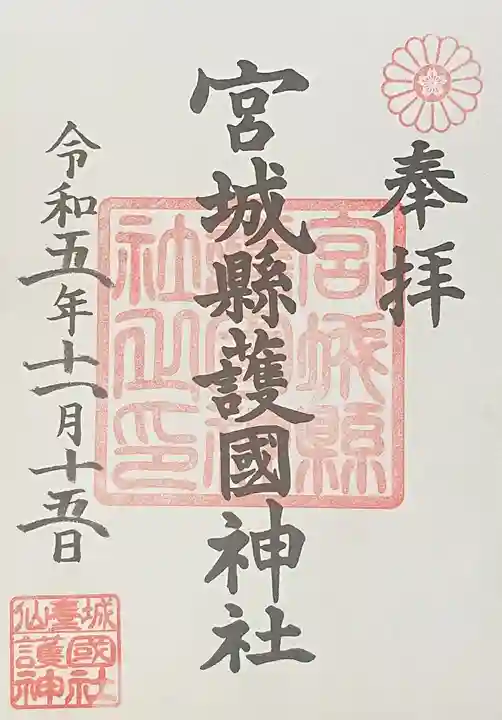 奉拝
宮城縣護國神社
令和五年十一月十五日
宮城縣
護國神
社之印
仙臺城
護國
神社